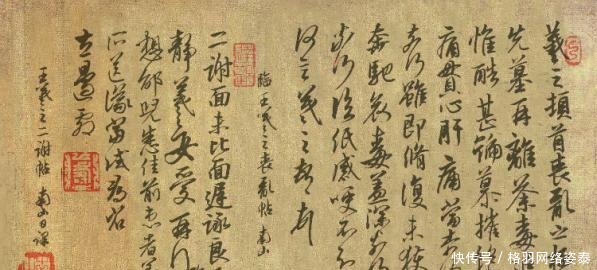 羲之頓首喪亂之極
先墓再離荼毒
惟酷甚號慕摧絕
痛貫心肝痛當奈
奈何雖即脩復未獲
奔馳哀毒益深奈何
奈何臨紙感哽不知
何言羲之頓首頓首
臨王羲之喪亂帖 南山
二謝面未比面遲詠良
靜羲之女愛再
想邰兒悉佳前患者善
所送議當試尋省
左邊劇
王羲之二謝帖 南山日課
快传号 / 格羽网络姿泰